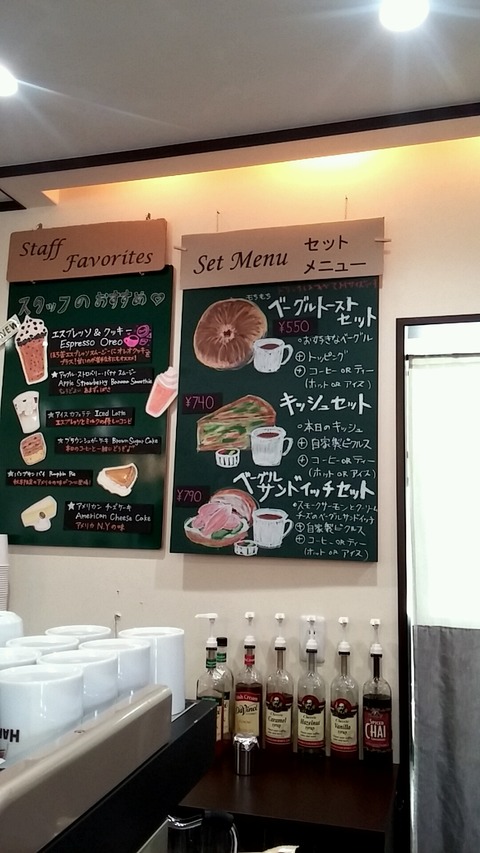 Staff
Favorites
スタッフのおすすめ♡
NEW
エスプレッソ&クッキー
Espresso Oreo
★アップル・ストロベリー・バナナ スムージー
Apple Strawberry Banana Smoothie
★アイスカフェラテ Iced Latte
エスプレッソとミルクの
★ブラウンシュガーケーキ Brown Sugar Cake
★パンプキンパイ Pumpkin Pie
★アメリカン チーズケーキ
American Cheese Cake
アメリカ N.Yの味
Set Menu セット
メニュー
もちもち
ベーグルトースト
セット
¥550
○おすきなベーグル
⊕トッピング
⊕コーヒー OR ティー
(ホット OR アイス)
キッシュセット
¥740
○本日のキッシュ
⊕自家製ピクルス
⊕コーヒー OR ティー
(ホット OR アイス)
ベーグル
サンドイッチセット
¥790
○スモークサーモンとクリーム
チーズのベーグルサンドイッチ
⊕自家製ピクルス
⊕コーヒー OR ティー
(ホット OR アイス)
Irish Cream
DaVinci
Classic
Caramel
Classic
Hazelnut
Classic
Vanilla
SPICED
CHAI